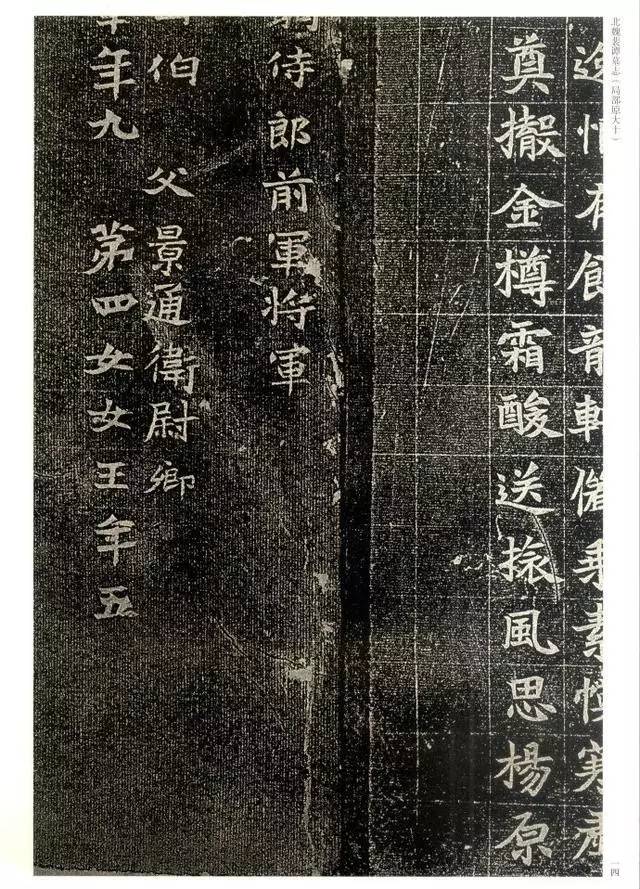 北魏裴谭墓志（局部原大十）
有龍素
奠撤金樽霜酸送風思楊原
侍郎前軍将軍
伯 父景通衛尉卿
年九 第四女女王年五
一四